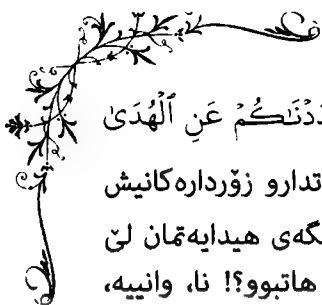 دَدْنَـٰكُمْ عَنِ ٱلْهُدَىٰ
تدارو زۆردارەكانیش
گەی هیدایەتمان لێ
هاتبوو؟! نا، وانییە،